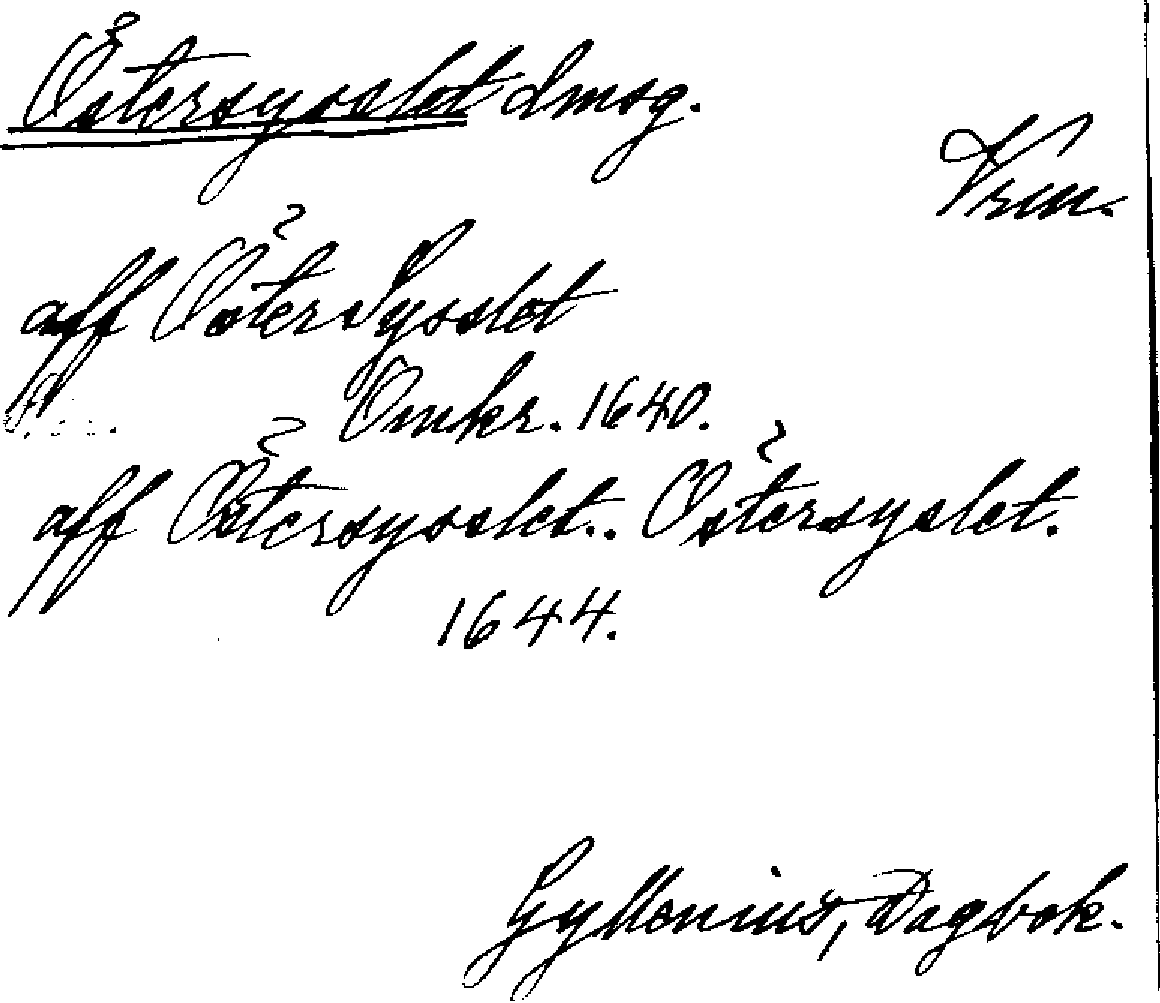 Östersysslet dmsg.
Vrm.
aff ÖsterSysslet
Omkr. 1640.
aff Östersysslet.. Östersyslet.
1644.
Gyllenius, Dagbok.